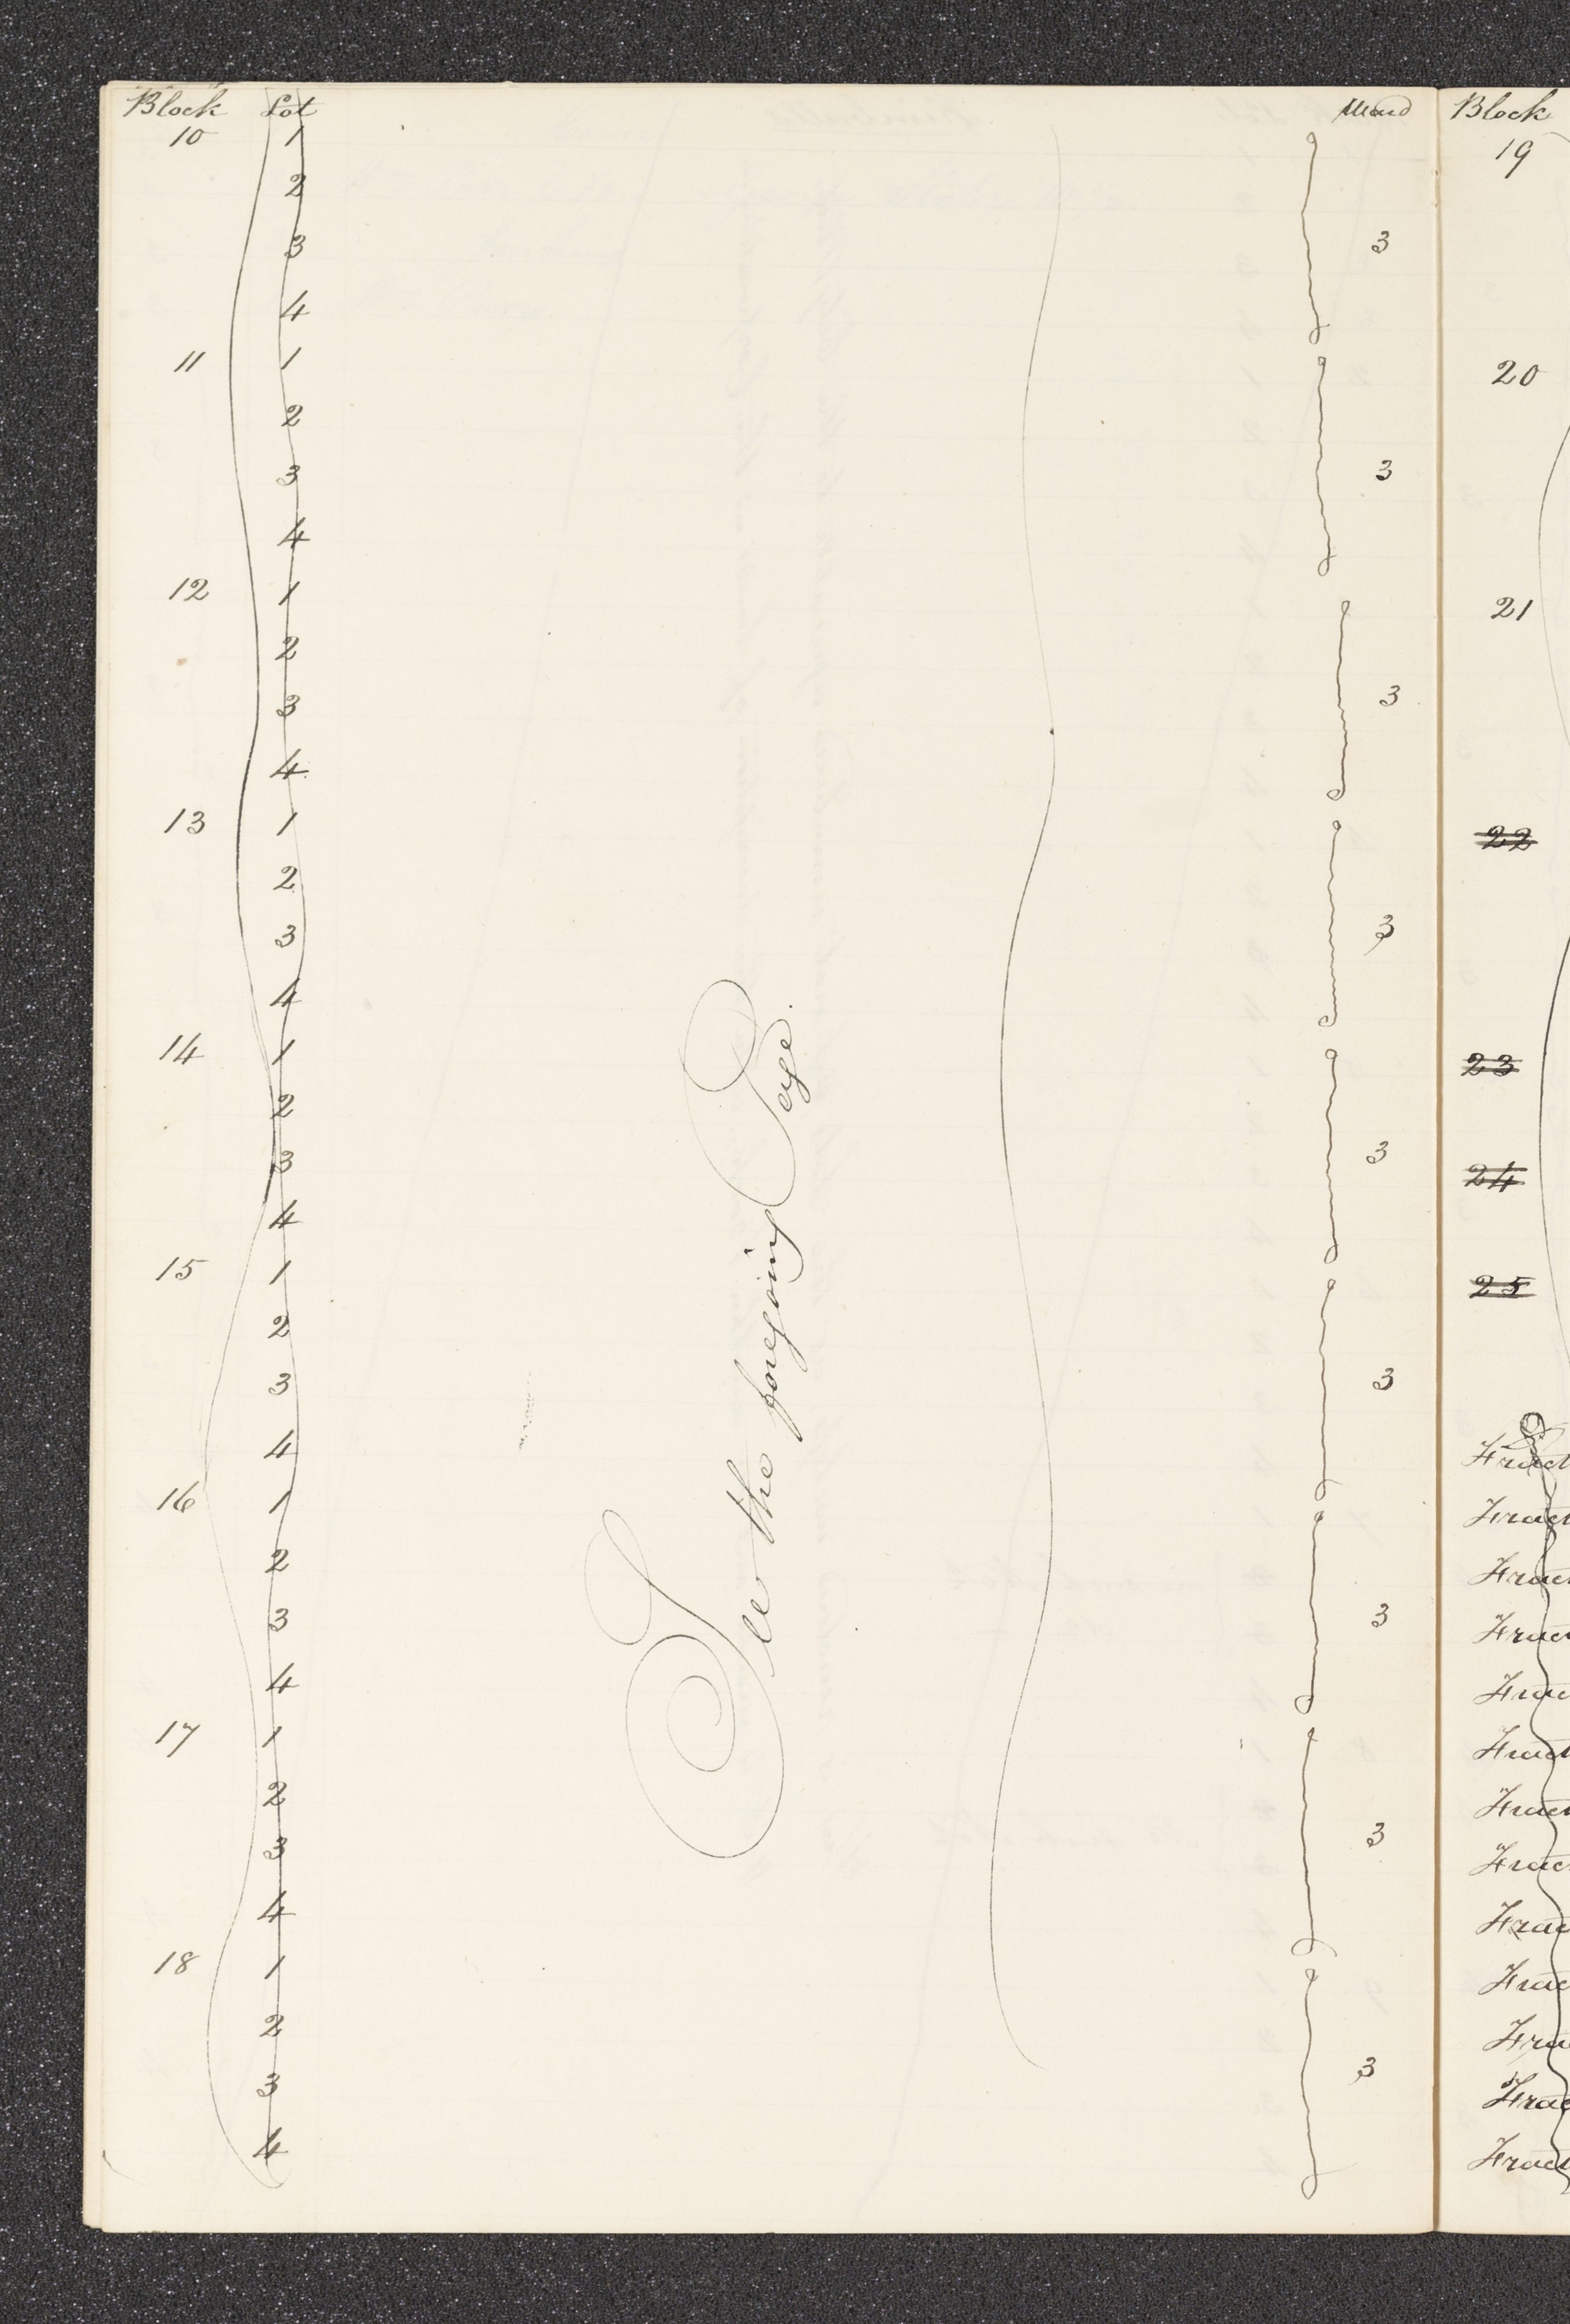 Block Lot Ward
10 1
2
3 3
4
11 1
2
3 3
4
12 1
2
3 3
4
13 1
2
3 3
4
14 1
2
3 3
4
15 1
2
3 3
4
16 1
2
3 3
4
17 1
2
3 3
4
18 1
2
3 3
4
See the foregoing Page.
Block
19
20
21
22
23
24
25
Fract
Fract
Fract
Frac
Frac
Fract
Fract
Frac
Frac
Frac
Fra
Frac
Fract